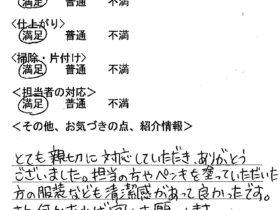 満足 普通 不満
<仕上がり>
満足 普通 不満
<掃除・片付け>
満足 普通 不満
<担当者の対応>
満足 普通 不満
<その他、お気づきの点、紹介情報>
とても親切に対応していただき、ありがとう
ございました。担当の方やペンキを塗っていただいた
方の服装なども清潔感があって良かったです。